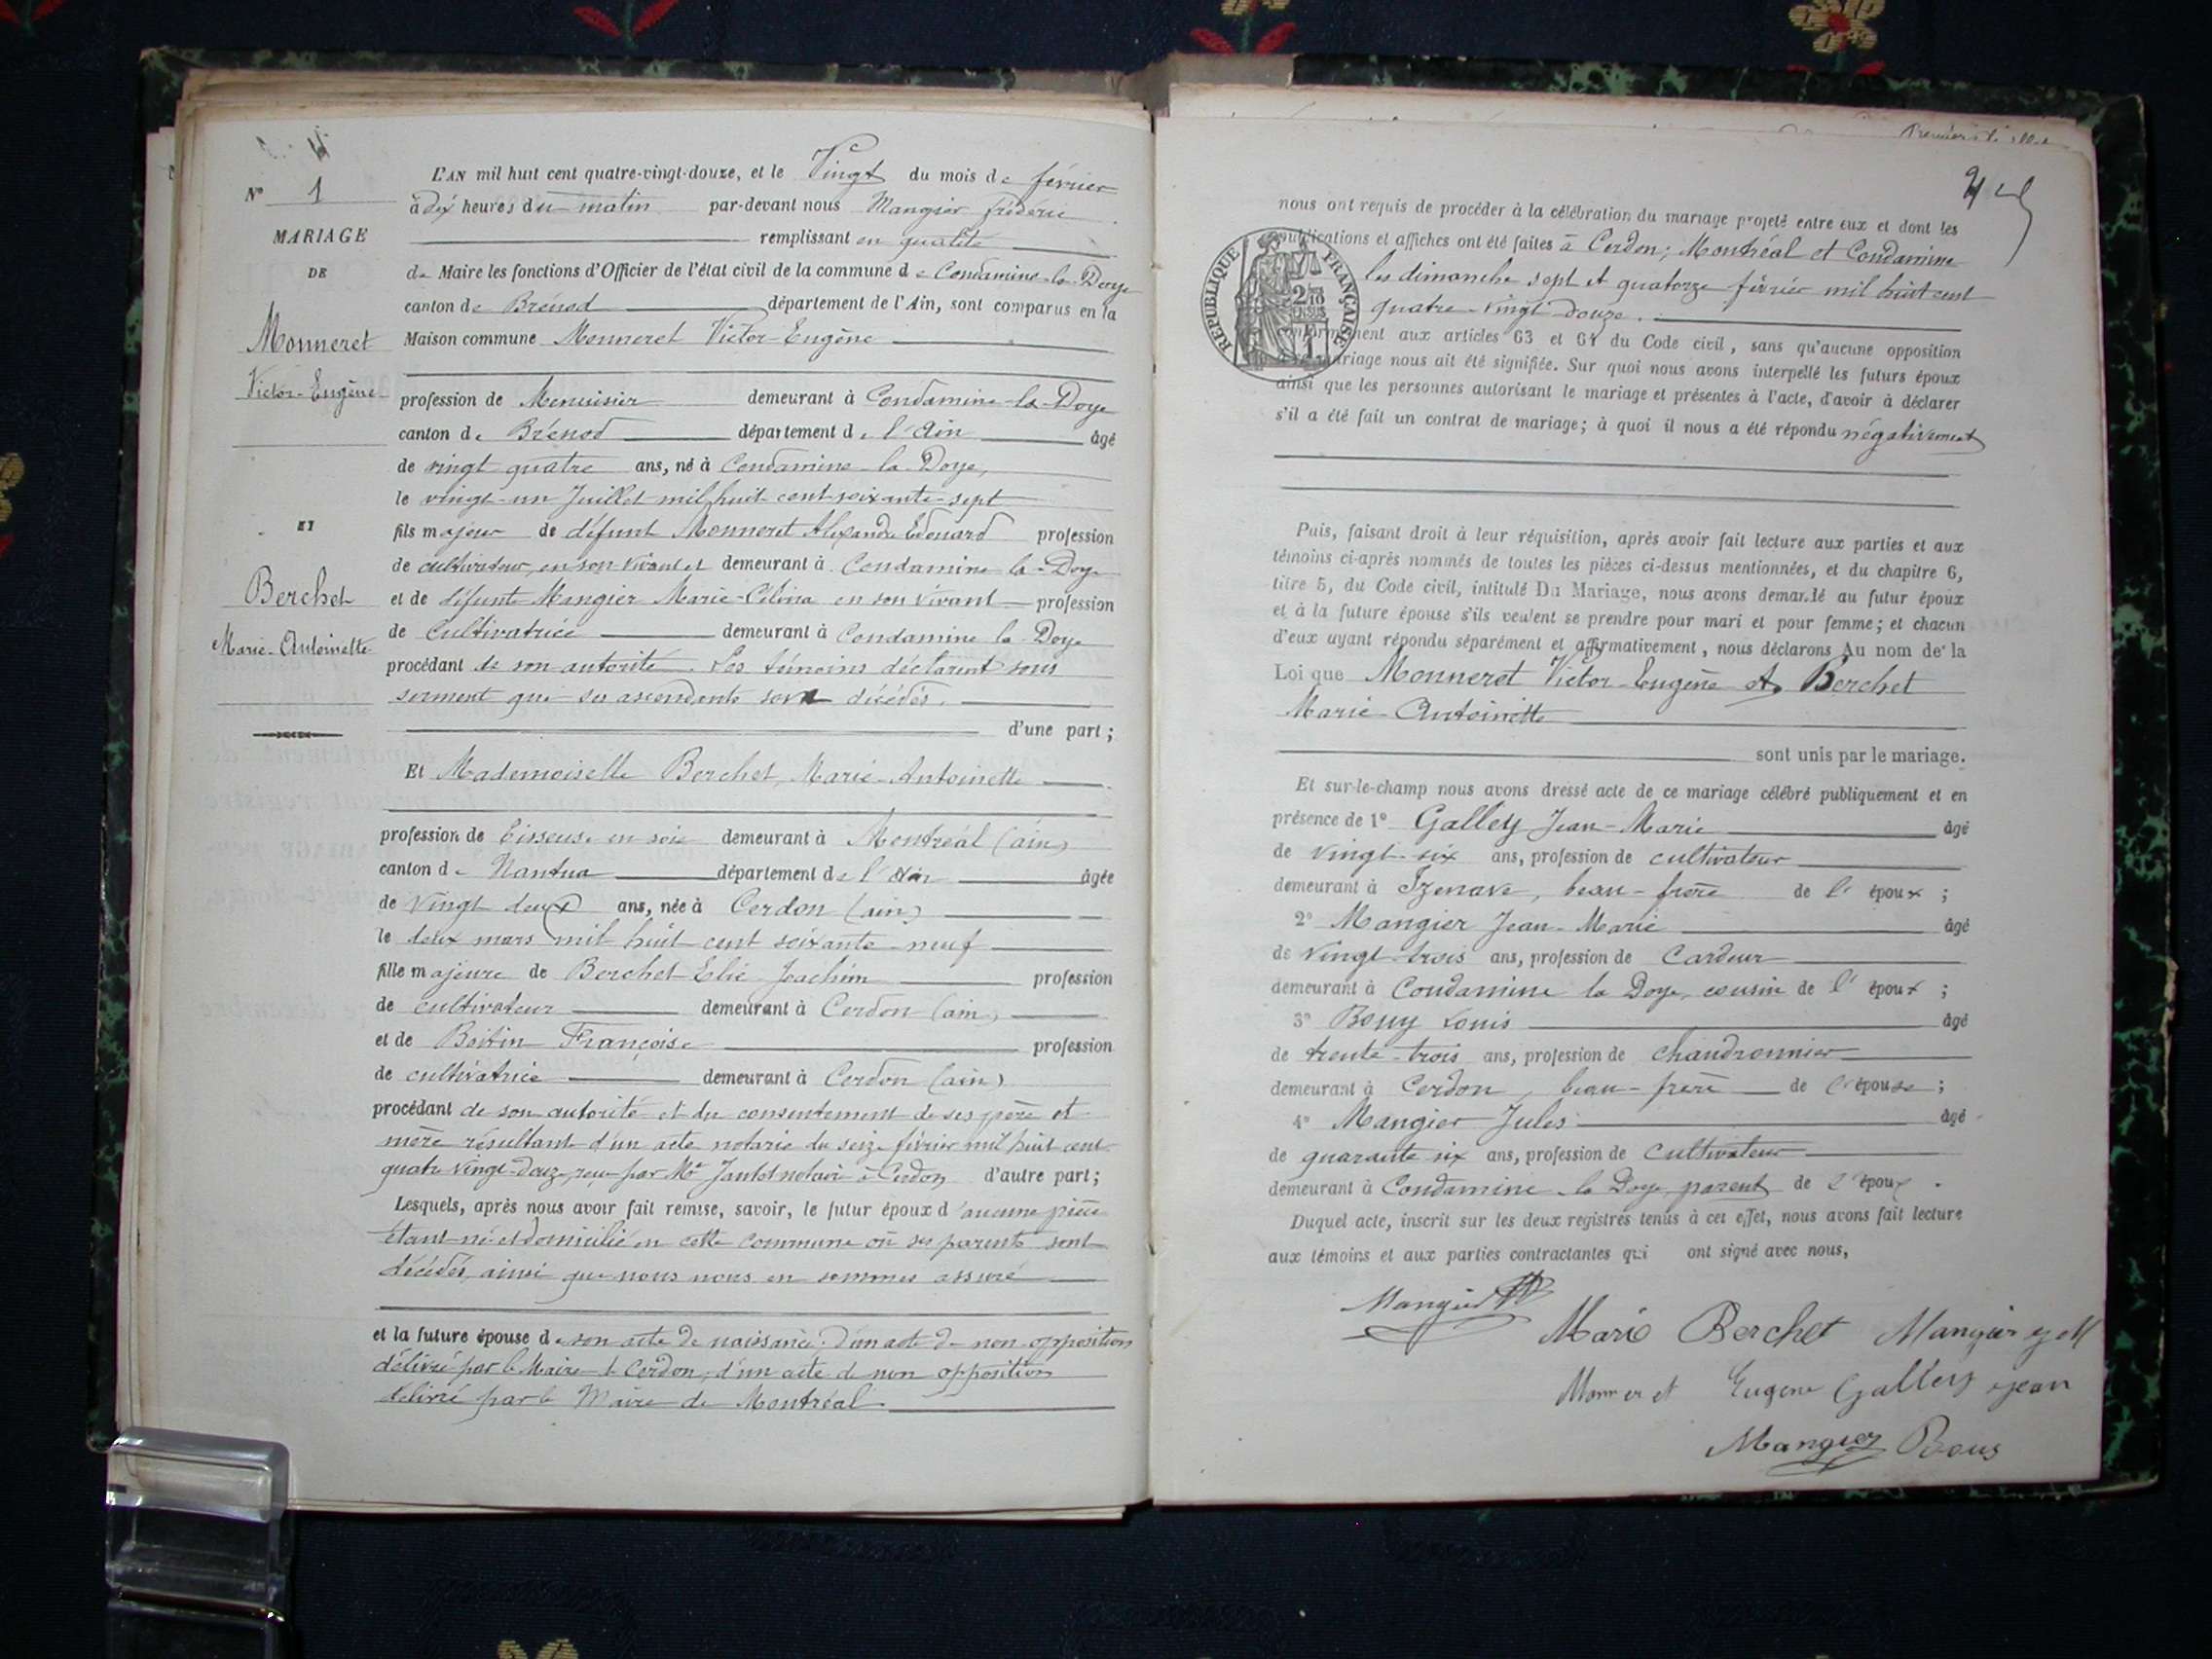 Nº 1
MARIAGE
DE
Monneret
Victor-Eugène
ET
Berchet
Marie-Antoinette
L'AN mil huit cent quatre-vingt-douze, et le Vingt du mois de février
à dix heures du matin par-devant nous Mangier frédéric
remplissant en qualité
de Maire les fonctions d'Officier de l'état civil de la commune de Condamine-la-Doye
canton de Brénod département de l'Ain, sont comparus en la
Maison commune Monneret Victor-Eugène
profession de Menuisier demeurant à Condamine-la-Doye
canton de Brénod département de l'Ain âgé
de vingt quatre ans, né à Condamine-la-Doye,
le vingt-un Juillet mil huit cent soixante-sept
fils majeur de défunt Monneret Alexandre Edouard profession
de cultivateur, en son vivant et demeurant à Condamine la-Doye
et de défunte Mangier Marie-Célina en son vivant profession
de Cultivatrice demeurant à Condamine la-Doye
procédant de son autorité. Les témoins déclarent sous
serment que ses ascendants sont décédés.
d'une part;
Et Mademoiselle Berchet, Marie-Antoinette
profession de Tisseuse en soie demeurant à Montréal (ain)
canton de Nantua département de l'Ain âgée
de Vingt deux ans, née à Cerdon (ain)
le deux mars mil huit cent soixante-neuf
fille majeure de Berchet Elie Joachim profession
de cultivateur demeurant à Cerdon (ain)
et de Boitin Françoise profession
de cultivatrice demeurant à Cerdon (ain)
procédant de son autorité et du consentement de ses père et
mère résultant d'un acte notarié du seize février mil huit cent
quatre vingt-douze, reçu par Me notaire à Cerdon d'autre part;
Lesquels, après nous avoir fait remise, savoir, le futur époux d'aucune pièce
étant né et domicilié en cette commune où ses parents sont
décédés, ainsi que nous nous en sommes assuré
et la future épouse de son acte de naissance; d'un acte de non opposition
délivré par le Maire de Cerdon, d'un acte de non opposition
délivré par le Maire de Montréal.
nous ont requis de procéder à la célébration du mariage projeté entre eux et dont les
publications et affiches ont été faites à Cerdon; Montréal et Condamine
les dimanche sept et quatorze février mil huit cent
quatre-vingt-douze.
REPUBLIQUE FRANÇAISE
conformément aux articles 63 et 64 du Code civil, sans qu'aucune opposition
mariage nous ait été signifiée. Sur quoi nous avons interpellé les futurs époux
ainsi que les personnes autorisant le mariage et présentes à l'acte, d'avoir à déclarer
s'il a été fait un contrat de mariage; à quoi il nous a été répondu négativement
Puis, faisant droit à leur réquisition, après avoir fait lecture aux parties et aux
témoins ci-après nommés de toutes les pièces ci-dessus mentionnées, et du chapitre 6,
titre 5, du Code civil, intitulé Du Mariage, nous avons demandé au futur époux
et à la future épouse s'ils veulent se prendre pour mari et pour femme; et chacun
d'eux ayant répondu séparément et affirmativement, nous déclarons Au nom de la
Loi que Monneret Victor-Eugène et Berchet
Marie-Antoinette
sont unis par le mariage.
Et sur-le-champ nous avons dressé acte de ce mariage célébré publiquement et en
présence de 1º Galley Jean-Marie âgé
de vingt-six ans, profession de cultivateur
demeurant à Izenave, beau-frère de l'époux;
2º Mangier Jean-Marie âgé
de Vingt-trois ans, profession de Cardeur
demeurant à Condamine la Doye, cousin de l'époux;
3º Bouy Louis âgé
de trente-trois ans, profession de chaudronnier
demeurant à Cerdon, beau-frère de l'épouse;
4º Mangier Jules âgé
de quarante six ans, profession de Cultivateur
demeurant à Condamine la Doye, parent de l'époux.
Duquel acte, inscrit sur les deux registres tenus à cet effet, nous avons fait lecture
aux témoins et aux parties contractantes qui ont signé avec nous,
Mangier
Marie Berchet Mangier JM
Monneret Eugene Galley Jean
Mangier Bouy